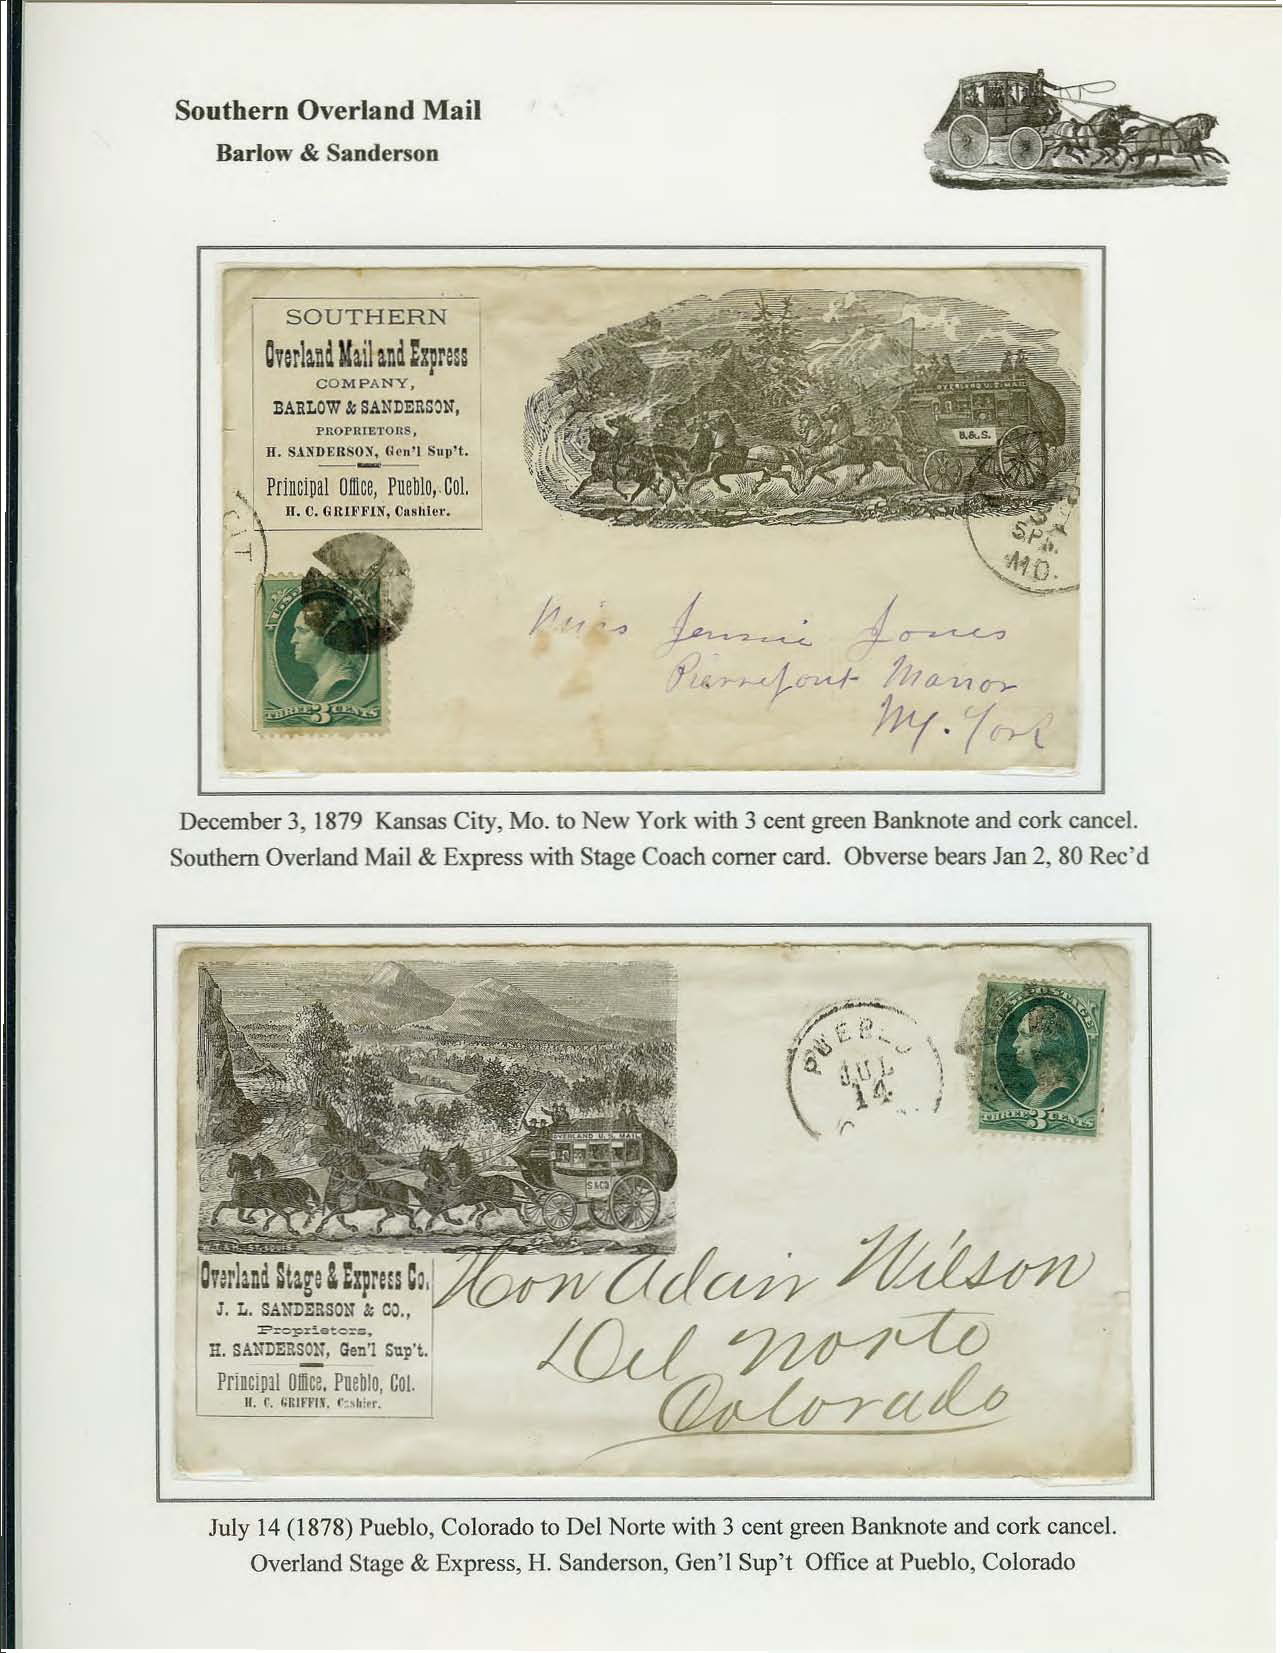 Southern Overland Mail
Barlow & Sanderson
SOUTHERN
Overland Mail and Express
COMPANY,
BARLOW & SANDERSON,
PROPRIETORS,
H. SANDERSON, Gen'l Sup't.
Principal Office, Pueblo, Col.
H. C. GRIFFIN, Cashier.
OVERLAND U.S. MAIL
B.&.S.
MO.
THREE 3 CENTS
Miss Jennie Jones
Pierrepont Manor
Ny. York
December 3, 1879 Kansas City, Mo. to New York with 3 cent green Banknote and cork cancel.
Southern Overland Mail & Express with Stage Coach corner card. Obverse bears Jan 2, 80 Rec'd
OVERLAND U. S. MAIL
S&CO
PUEBLO
JUL
14
THREE 3 CENTS
Overland Stage & Express Co.
J. L. SANDERSON & CO.,
Proprietors,
H. SANDERSON, Gen'l Sup't.
Principal Office, Pueblo, Col.
H. C. GRIFFIN, Cashier.
Hon Adair Wilson
Del Norte
Colorado
July 14 (1878) Pueblo, Colorado to Del Norte with 3 cent green Banknote and cork cancel.
Overland Stage & Express, H. Sanderson, Gen'l Sup't Office at Pueblo, Colorado